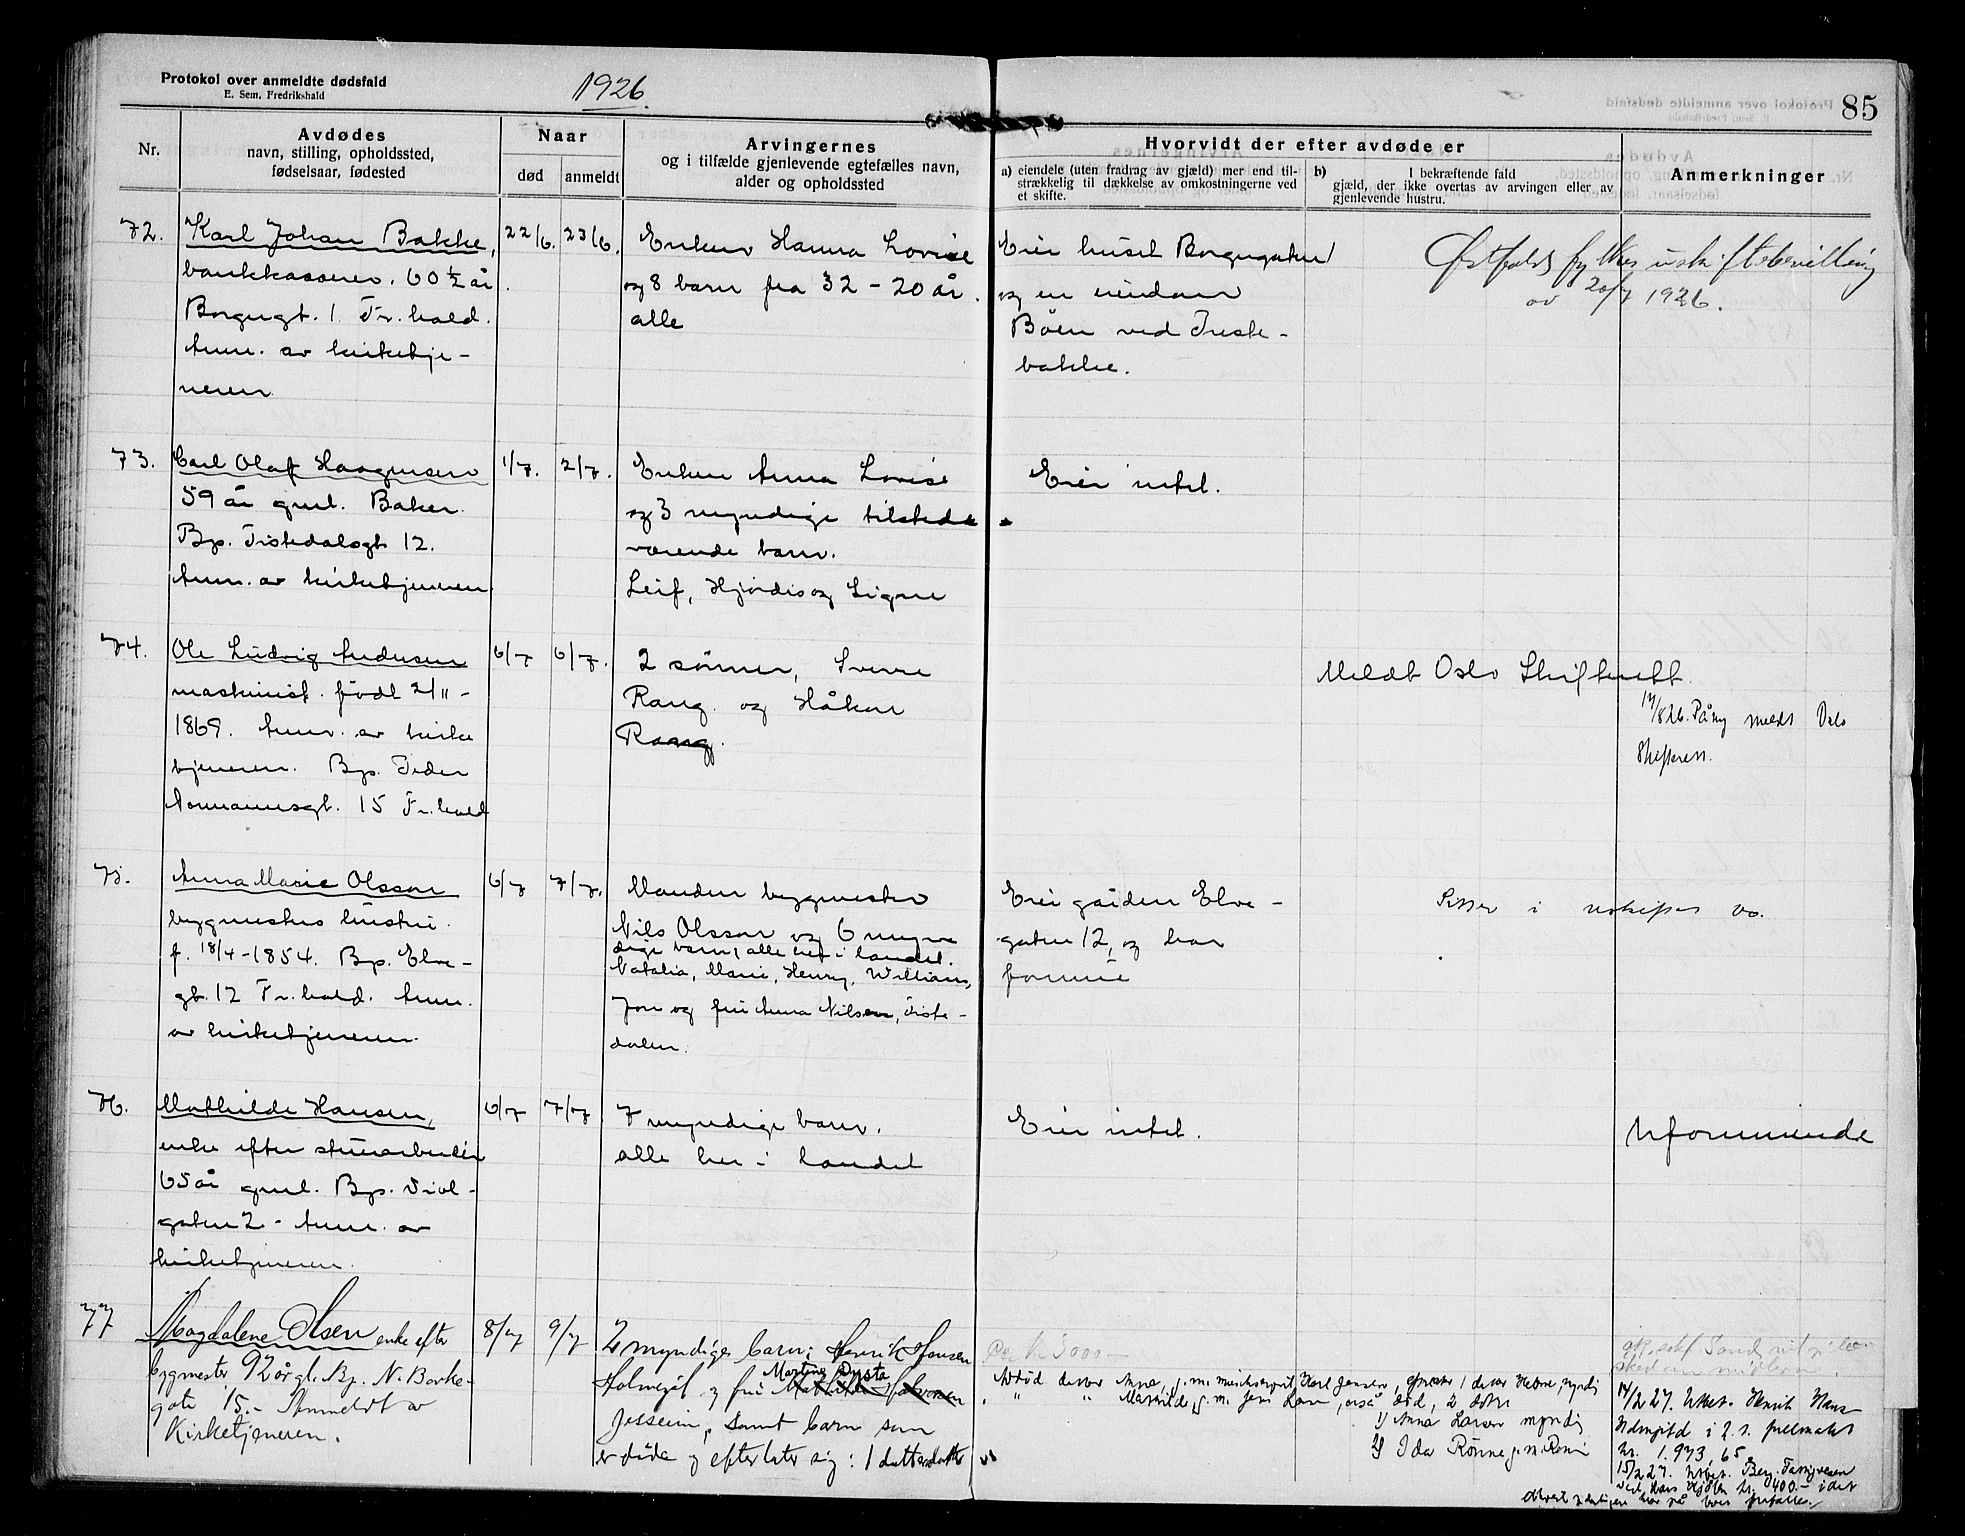 Protokol over anmeldte dødsfald
E. Sem, Fredrikshald
1926.
85
Nr.
Avdødes
navn, stilling, opholdssted,
fødselsaar, fødested
Naar
død
anmeldt
Arvingernes
og i tilfælde gjenlevende egtefælles navn,
alder og opholdssted
Hvorvidt der efter avdøde er
a) eiendele (uten fradrag av gjæld) mer end til-
strækkelig til dækkelse av omkostningerne ved
et skifte.
b) I bekræftende fald
gjæld, der ikke overtas av arvingen eller av
gjenlevende hustru.
Anmerkninger
72.
Karl Johan Bakke,
bankkasserer. 60 ½ år.
Borgergt. 1. Fr.hald.
Anm. av kirketje-
neren
22/6.
23/6.
Enken Hanna Lovise
og 8 barn fra 32 – 20 år.
alle
Eier huset Borgergaten 1
og en eiendom
Böen ved Tiste-
bakke.
Østfold fylkes uskiftebevilling
av 20/7 1926.
73.
Carl Olaf Haagensen
59 år gml. Baker.
Bp. Tistedalsgt. 12.
Anm. av kirketjeneren
1/7.
2/7.
Enken Anna Lovise
og 3 myndige tilstede
værende barn.
Leif, Hjördis og Signe
Eier intet.
74.
Ole Ludvig Andersen
maskinist. född 2/11 -
1869. Anm. av kirke
tjeneren. Bp. Peder
Normannsgt. 15 Fr.hald
6/7
6/7.
2 sönner, Sverre
Rang. og Håkon
Rang.
Meldt Oslo Skifterett.
17/8 26. På ny meldt Oslo
Skifterett.
75.
Anna Marie Olsson
bygmesters hustru.
f. 18/4 - 1854. Bp. Elve-
gt. 12 Fr.hald. Anm.
av kirketjeneren.
6/7
7/7.
Manden bygmester
Nils Olsson og 6 myn
dige barn, alle her i landet.
Natalia, Marie, Henry, William,
Jon og fru Anna Nilsen, Tiste-
dalen.
Eier gården Elve-
gaten 12, og har
formue
Sitter i uskiftet bo.
76.
Mathilde Hansen,
enke efter stenarbeider
65 år gml. Bp. Viol-
gaten 2 - Anm. av
kirketjeneren.
6/7
7/7
7 myndige barn.
alle her i landet
Eier intet.
Uformuende
77
Magdalene Olsen enke efter
bygmester 92 år gl. Bp. N. Banke-
gate 15. - Anmeldt av
Kirketjeneren.
8/7
9/7
2 myndige barn: Henrik Hansen
Holmgil og fru Mathilde Halvorsen
Martine Dysta
Jesseim, samt barn som
er döde og efterlater sig: 1 datterdatter
Ca kr 3000 -
Avdöd datter Anna, g. m. maskinist Karl Jensen, efterlater 1 datter Helene, myndig
" " Mathilde, g. m. Jens Larsen, også död, 2 döttre
1) Anna Larsen myndig
2) Ida Rönne g. m. Rönne
14/2 27. Utbet. Henrik Hans
Holmgil i 2 s. fullmakt
kr. 1.973,65
15/2 27. Utbet. Berg Fattigvesen
ved Hans kr. 400.- idet